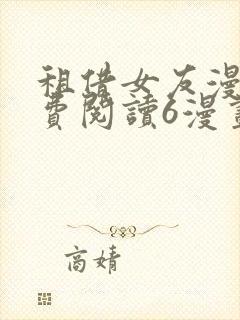 租借女友漫
費閱讀6漫畫
高婧